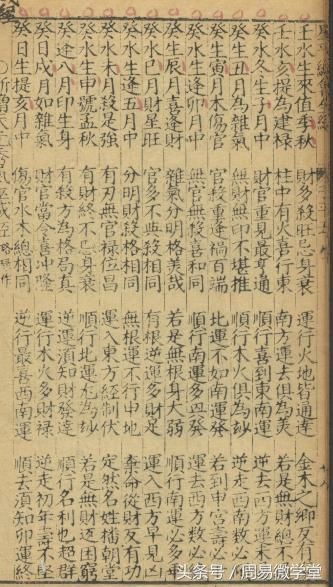 壬水生來值季秋　財多殺旺忌身衰　運行火地皆通達　金木之鄉反
壬水亥提為建祿　柱中有火喜行東　南方運去俱為美　若是無財總不
癸水冬生子月中　財官重見最亨通　順行喜到東南運　逆去四方運未
癸生丑月為雜氣　無財無印不堪推　順行木火俱為詠　逆走西南救必
癸生寅月木傷官　官殺重逢禍百端　比運不如南運發　若到申宮壽必
癸水生逢卯月中　無官無殺喜和同　順行南運多興發　運去西方救必
癸生辰月喜逢財　雜氣分明格美哉　若是無根身大弱　順行南運必多
癸生巳月財星旺　官多不與殺相同　有根逆運多財足　運入西方早見凶
癸水生逢午月中　分明財殺格相同　無根運不行申地　棄命從財反有功
癸水未月殺是強　有刃無官祿位昌　運入東方經制伏　定然名姓播朝堂
癸水生申號孟秋　有財終不忌身衰　順行北運尤為詠　若是無財返困窮
癸逢八月印生身　有殺方為格局真　逆運須知財發達　順行名利也超群
癸日戌月如雜氣　財官當令喜沖隆　順行木火多財祿　逆走初年壽不堅
癸日生提亥月中　傷官水木總相同　逆行最喜西南運　順去須知卯運終
头条号 / 周易微学堂